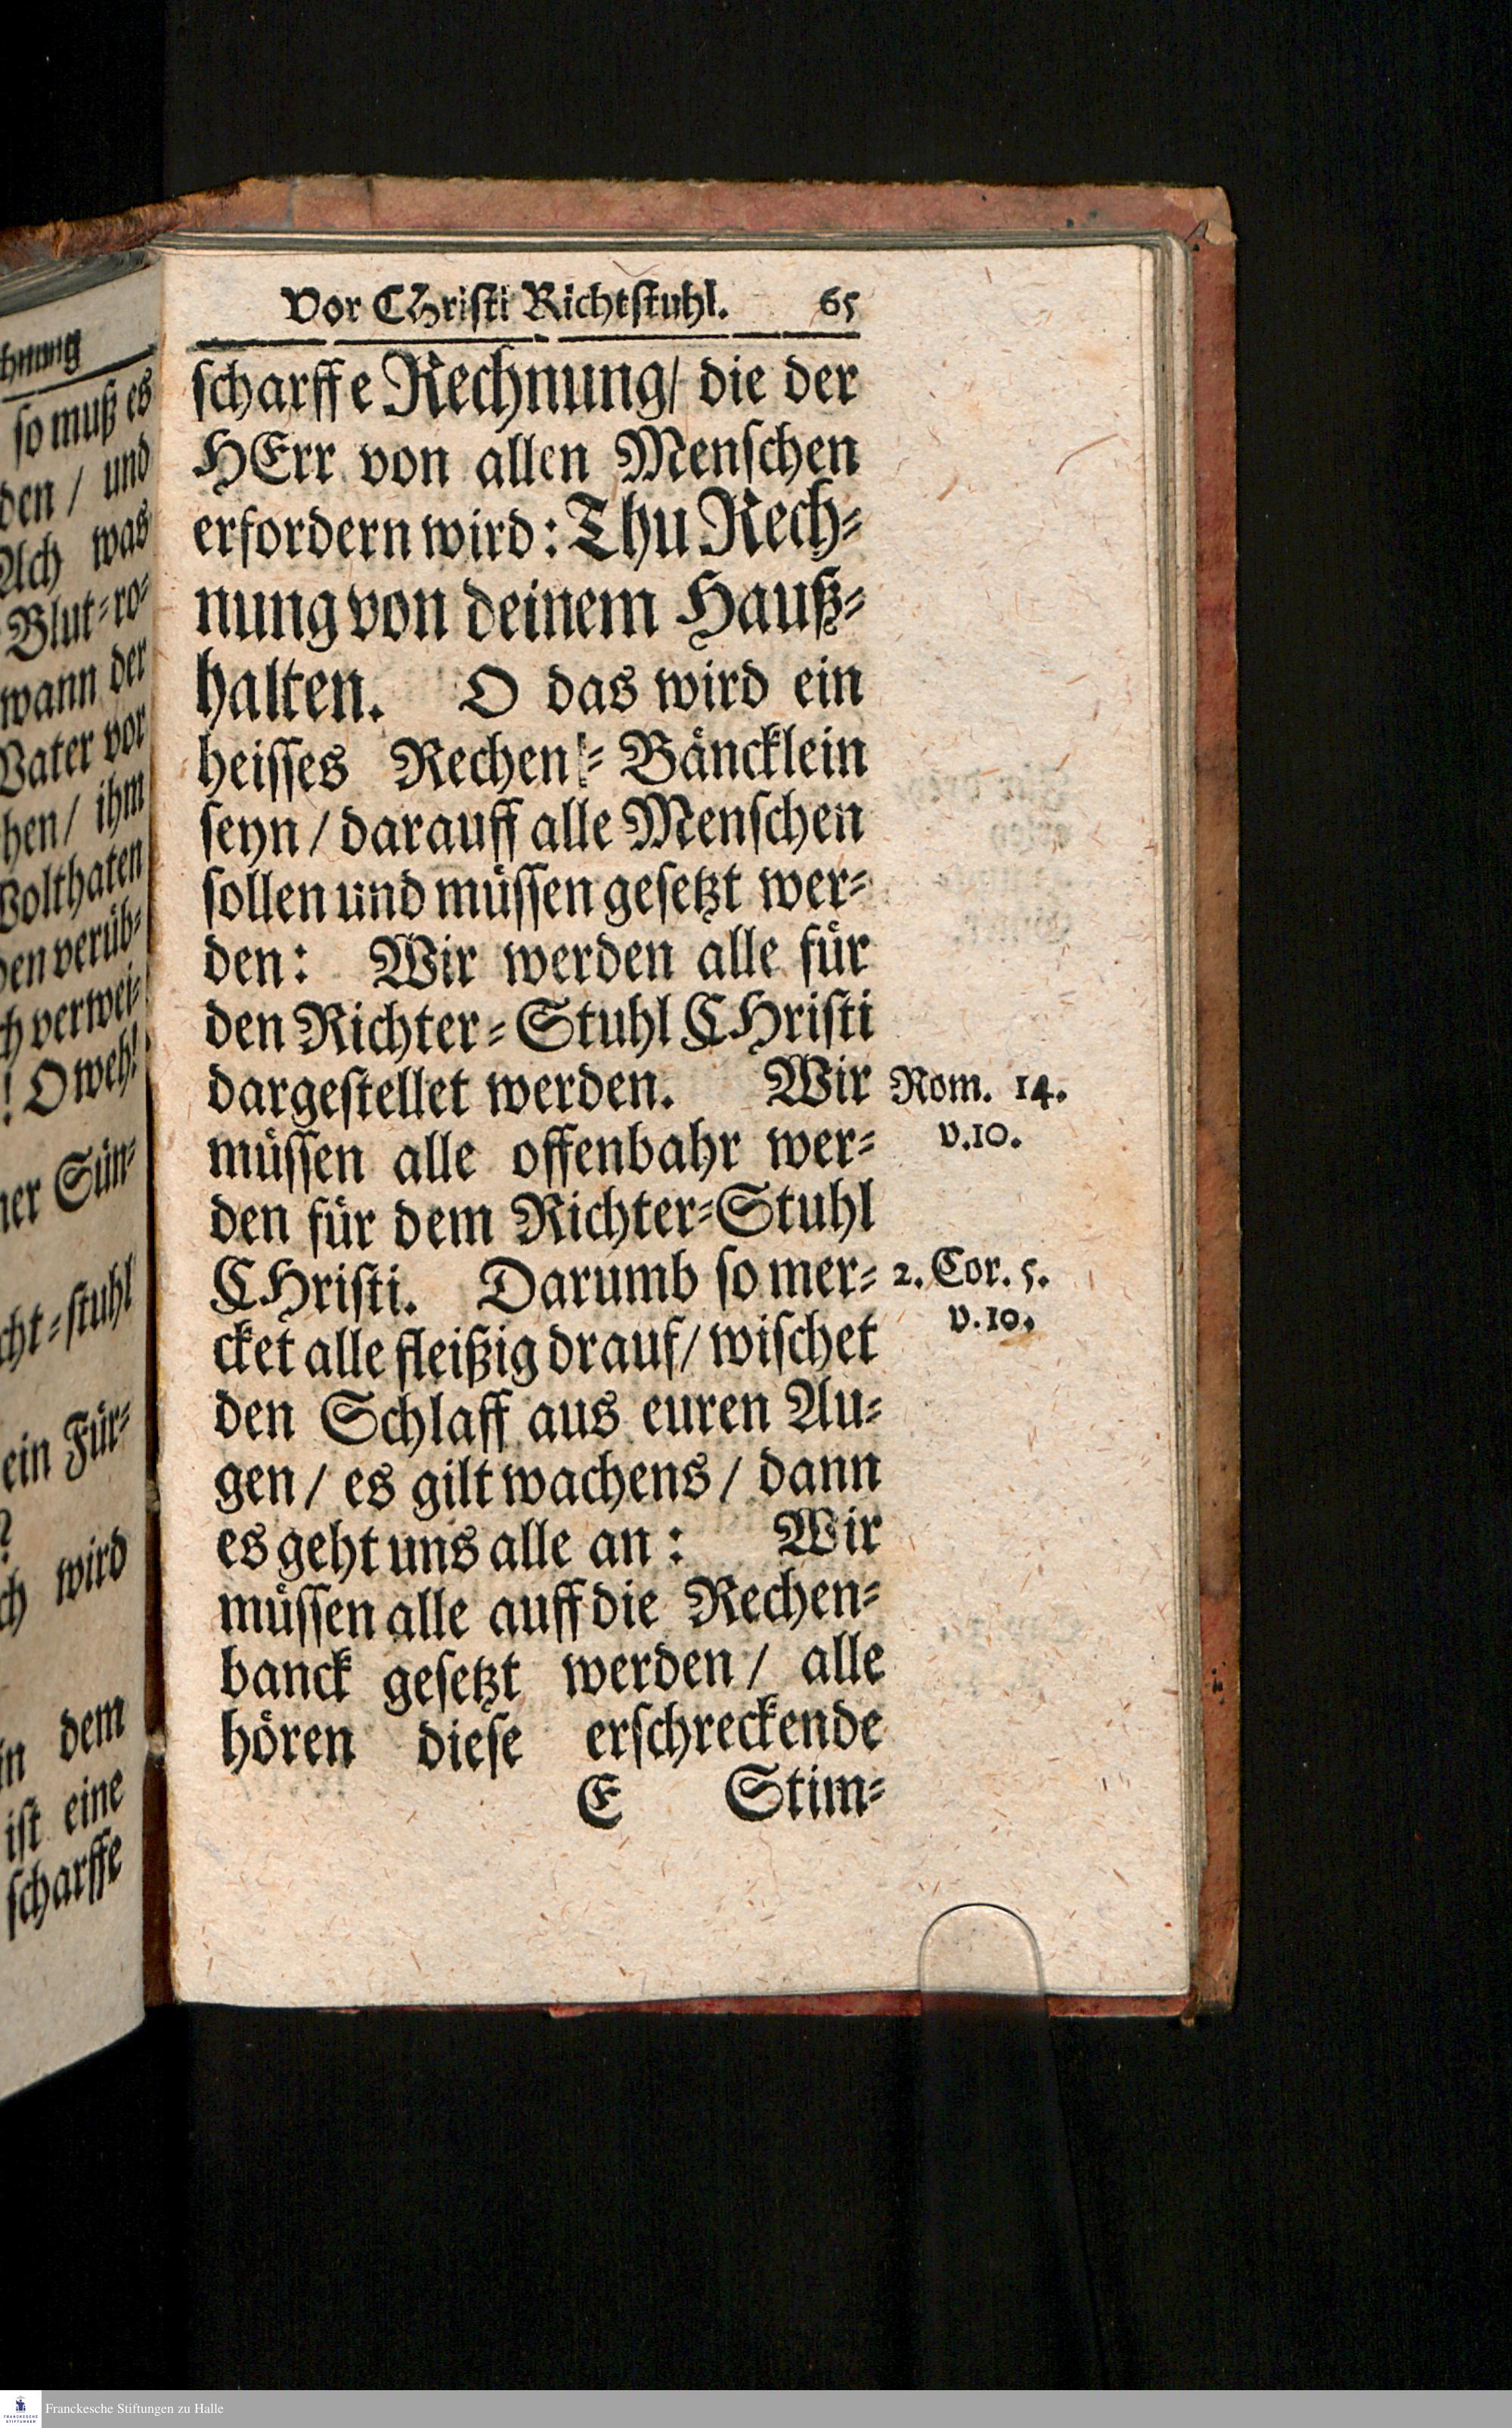 chnung
so muß es
den / und
Ach was
Blut=ro=
wann der
Vater vor
hen/ ihm
Wolthaten
den verüb=
ch verwei=
! O weh!
ner Sün=
cht=stuhl
ein Für=
?
ch wird
in dem
ist eine
scharffe
Vor Christi Richtstuhl. 65
scharffe Rechnung/ die der
HErr von allen Menschen
erfordern wird: Thu Rech=
nung von deinem Hauß=
halten. O das wird ein
heisses Rechen=Bäncklein
seyn / darauff alle Menschen
sollen und müssen gesetzt wer=
den: Wir werden alle für
den Richter=Stuhl CHristi
dargestellet werden. Wir
Rom. 14.
v.10.
müssen alle offenbahr wer=
den für dem Richter=Stuhl
CHristi. Darumb so mer=
2. Cor. 5.
v.10.
cket alle fleißig drauf/ wischet
den Schlaff aus euren Au=
gen / es gilt wachens / dann
es geht uns alle an: Wir
müssen alle auff die Rechen=
banck gesetzt werden / alle
hören diese erschreckende
E Stim=
Franckesche Stiftungen zu Halle